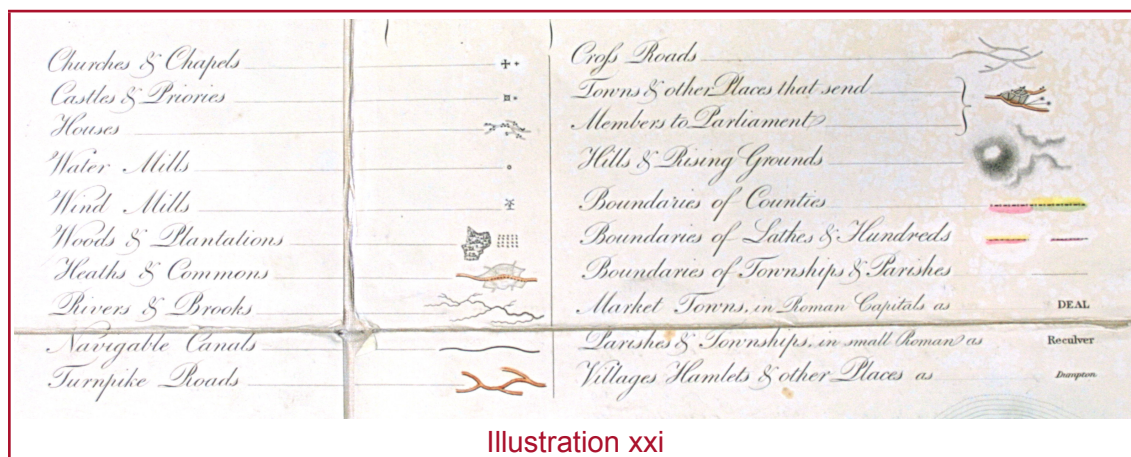 Churches & Chapels
Castles & Priories
Houses
Water Mills
Wind Mills
Woods & Plantations
Heaths & Commons
Rivers & Brooks
Navigable Canals
Turnpike Roads
Croſs Roads
Towns & other Places that send
Members to Parliament
Hills & Rising Grounds
Boundaries of Counties
Boundaries of Lathes & Hundreds
Boundaries of Townships & Parishes
Market Towns, in Roman Capitals as DEAL
Parishes & Townships, in small Roman as Reculver
Villages Hamlets & other Places as Dumpton
Illustration xxi